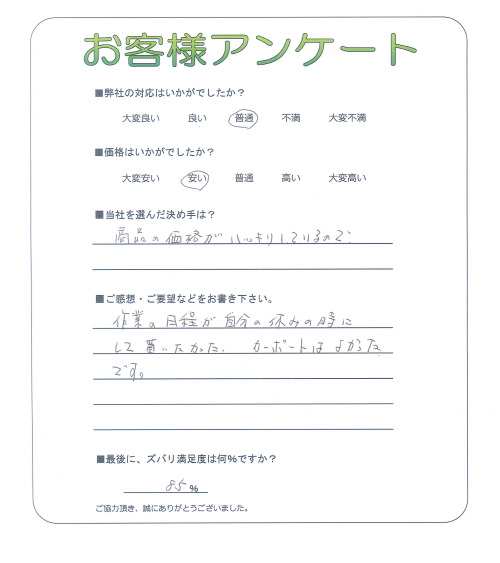 お客様アンケート
■弊社の対応はいかがでしたか？
大変良い 良い 普通 不満 大変不満
■価格はいかがでしたか？
大変安い 安い 普通 高い 大変高い
■当社を選んだ決め手は？
商品の価格がハッキリしているので。
■ご感想・ご要望などをお書き下さい。
作業の日程が自分の休みの時に
して貰いたかった。 カーポートはよかった
です。
■最後に、ズバリ満足度は何%ですか？
85%
ご協力頂き、誠にありがとうございました。